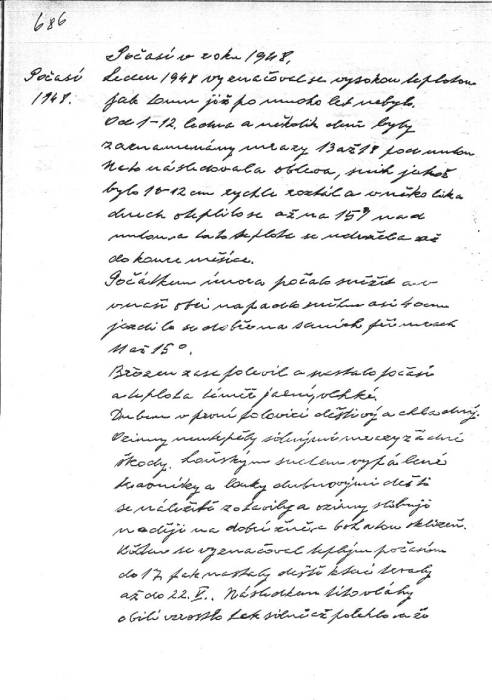 686
Počasí v roku 1948.
Počasí
1948.
Leden 1948 vyznačoval se vysokou teplotou
jak tomu již po mnoho let nebylo.
Od 1-12. ledna a několik dnů byly
zaznamenány mrazy 13 až 18 pod nulou
Nato následovala obleva, sníh jehož
bylo 10-12 cm rychle roztál a v několika
dnech oteplilo se až na 15° nad
nulou, a tato teplota se udržela až
do konce měsíce.
Počátkem února počalo sněžit a v
v naší obci napadlo sněhu asi 40 cm
jezdilo se dobře na saních při mrazech
11 až 15°.
Březen zase polevil a nastalo počasí
a teplota téměř jarní vlhké.
Duben v první polovici deštivý a chladný.
Ozimy neutrpěly silnými mrazy žádné
škody. Loňským suchem vypálené
travníky a louky dubnovými dešti
se náležitě zotavily a ozimy slibují
naději na dobré žně, a bohatou sklizeň.
Květen se vyznačoval teplým počasím
do 17. pak nastaly deště které trvaly
až do 22. V. Následkem této vláhy
obilí vzrostlo tak silně až polehlo a žo